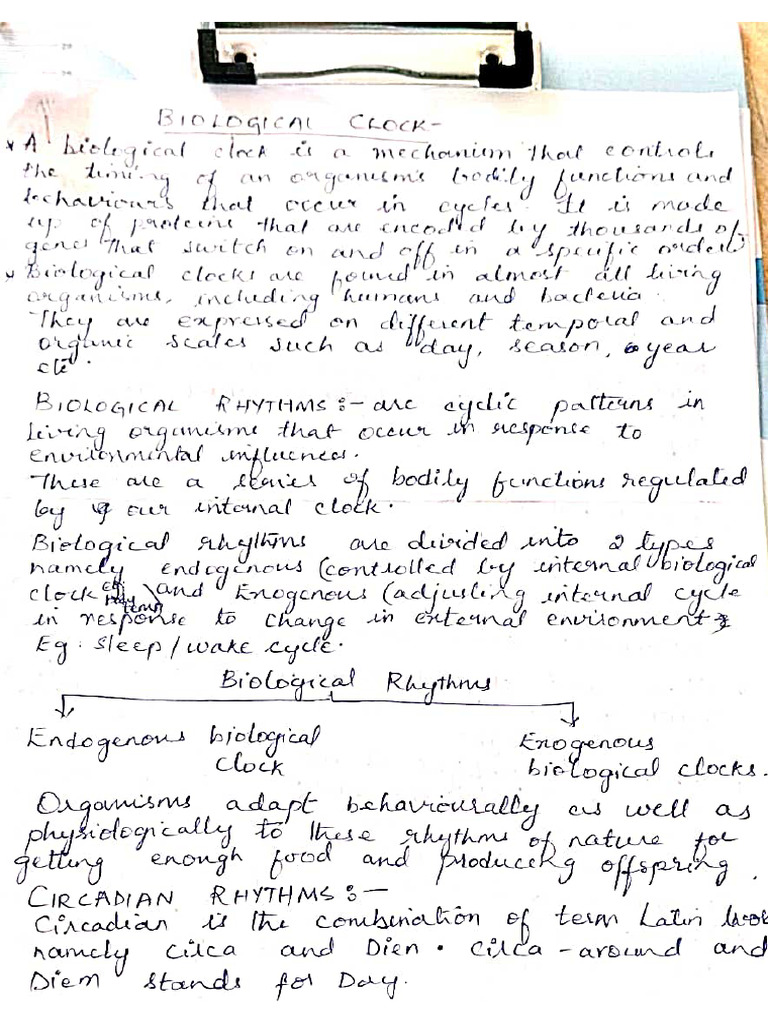 BIOLOGICAL CLOCK-
* A biological clock is a mechanism that controls
the timing of an organism's bodily functions and
behaviours that occur in cycles. It is made
up of proteins that are encoded by thousands of
genes that switch on and off in a specific order.
* Biological clocks are found in almost all living
organisms, including humans and bacteria.
They are expressed on different temporal and
organic scales such as day, season, year
etc.
BIOLOGICAL RHYTHMS:- are cyclic patterns in
living organisms that occur in response to
environmental influences.
These are a series of bodily functions regulated
by our internal clock.
Biological rhythms are divided into 2 types
namely endogenous (controlled by internal biological
clock eg body temp) and Exogenous (adjusting internal cycle
in response to change in external environment)
Eg: sleep/wake cycle.
Biological Rhythms
Endogenous biological
clock
Exogenous
biological clocks.
Organisms adapt behaviourally as well as
physiologically to these rhythms of nature for
getting enough food and producing offspring.
CIRCADIAN RHYTHMS:-
Circadian is the combination of term Latin
namely Circa and Dien. Circa-around and
Diem stands for Day.